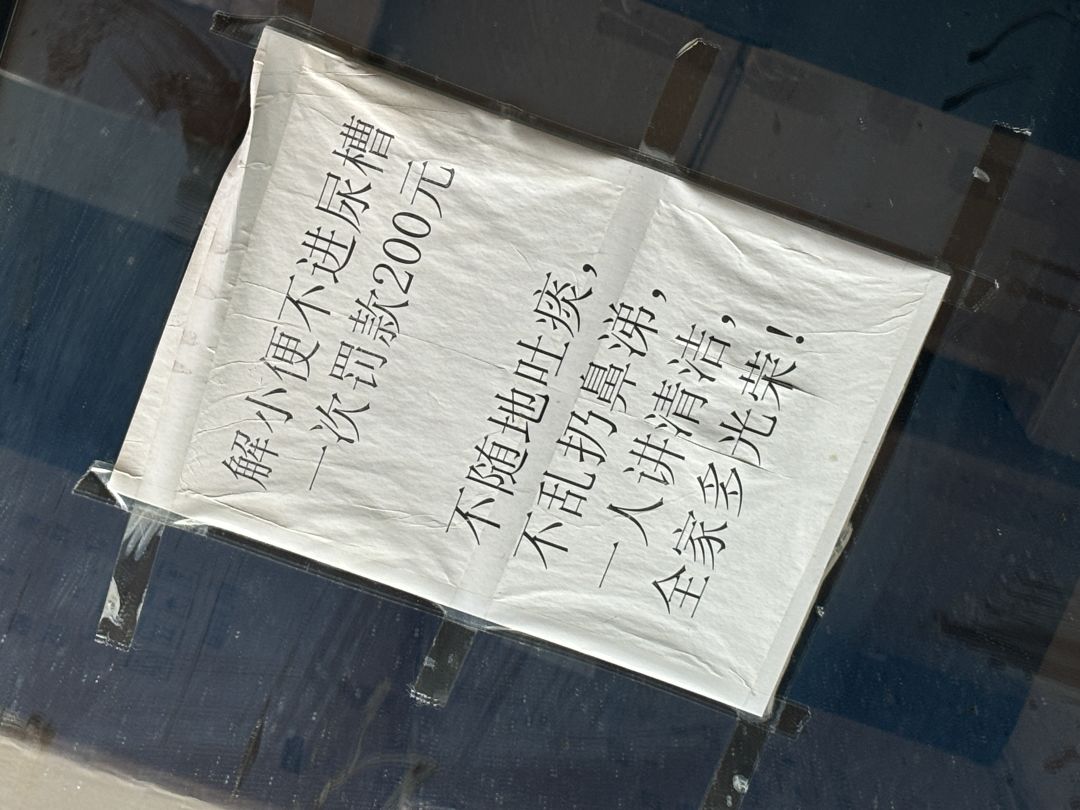 解小便不进尿槽
一次罚款200元
不随地吐痰，
不乱扔鼻涕，
一人讲清洁，
全家多光荣！